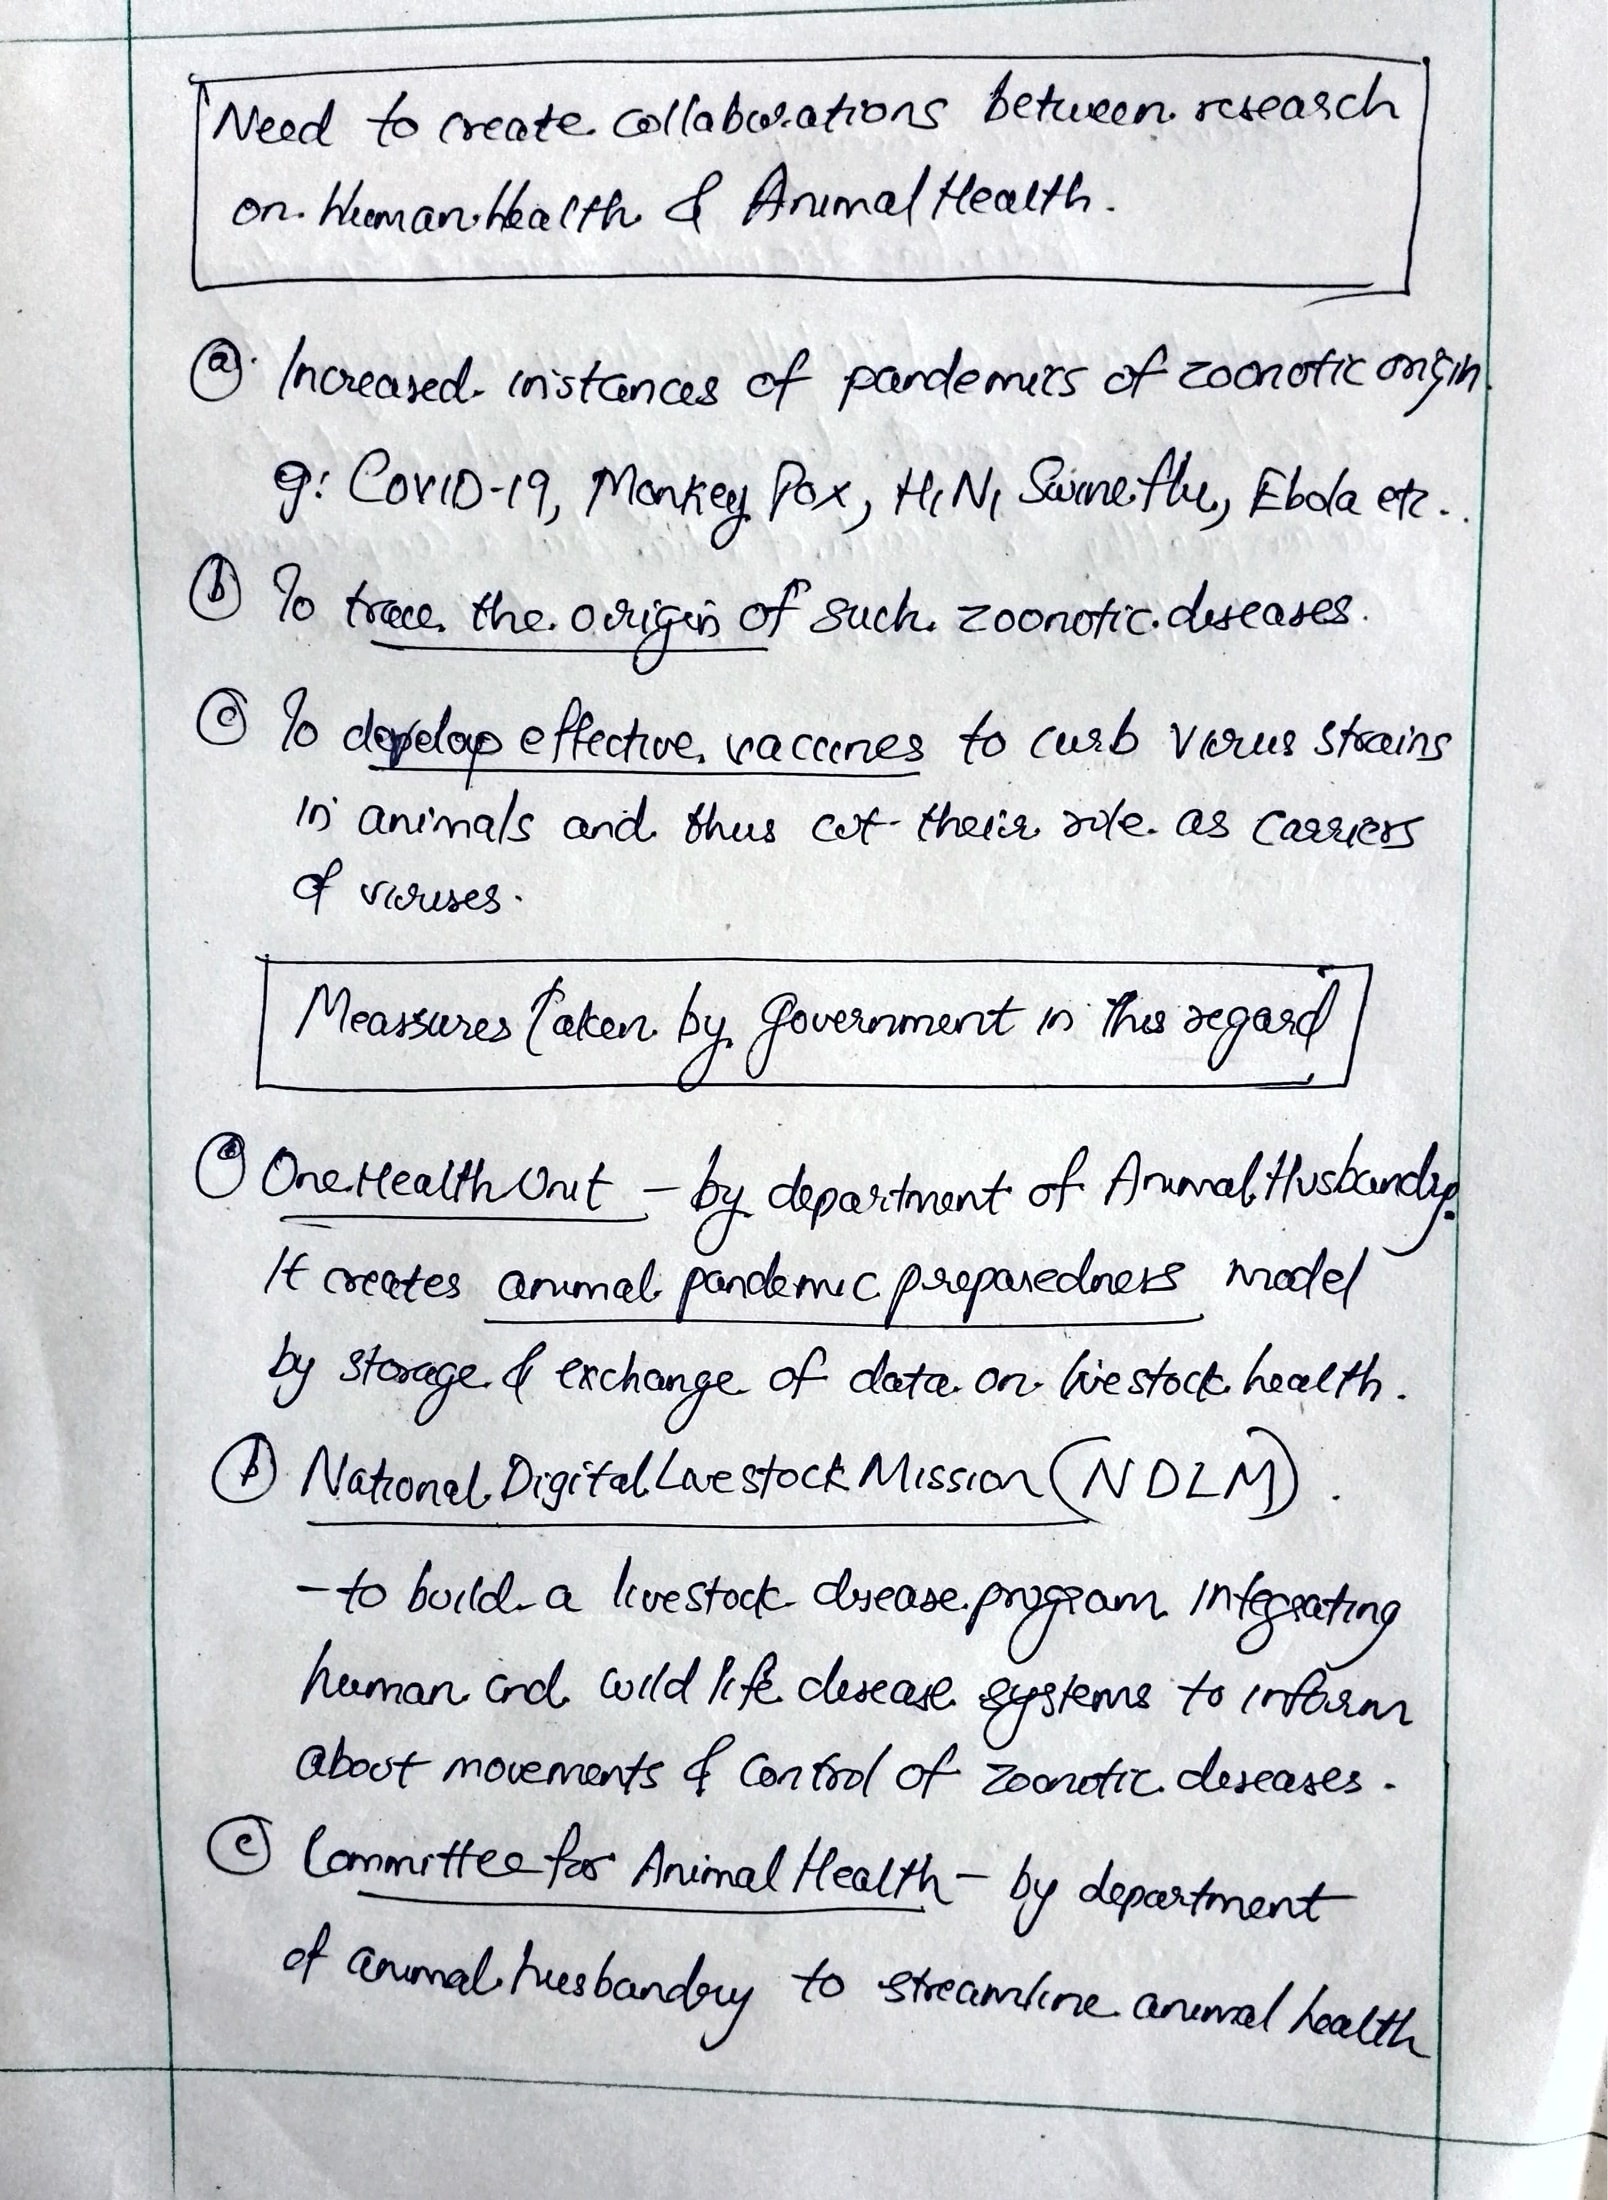 Need to create collaborations between research
on Human Health & Animal Health.
(a) Increased instances of pandemics of zoonotic origin
eg: Covid-19, Monkey Pox, H1N1 Swine flu, Ebola etc.
(b) To trace the origin of such zoonotic diseases.
(c) To develop effective vaccines to curb virus strains
in animals and thus cut their role as carriers
of viruses.
Meassures Taken by Government in this regard
(a) One Health Unit - by department of Animal Husbandry.
It creates animal pandemic preparedness model
by storage & exchange of data on livestock health.
(b) National Digital Livestock Mission (NDLM).
- to build a livestock disease program integrating
human and wild life disease systems to inform
about movements & control of zoonotic diseases.
(c) Committee for Animal Health - by department
of animal husbandry to streamline animal health